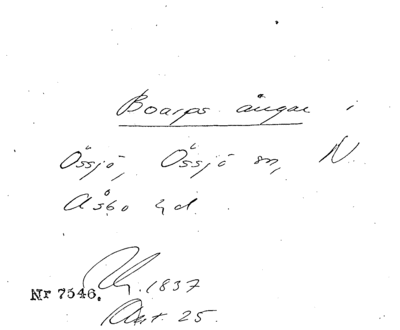 Boarps ängar i
Össjö, Össjö sn, N.
Åsbo hd.
1837
Nr 7546.
Akt. 25.